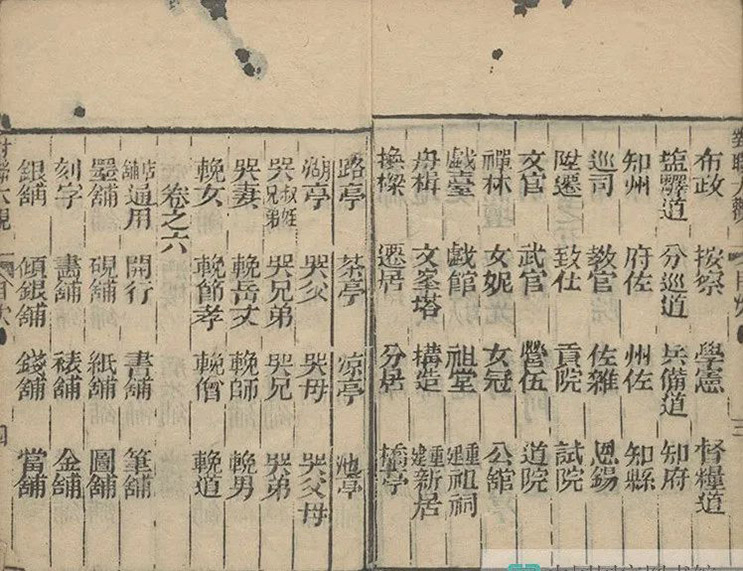 對聯大觀 目次 三
布政 按察 學憲 督糧道
鹽驛道 分巡道 兵備道 知府
知州 府佐 州佐 知縣
巡司 教官 佐雜 恩錫
陞遷 致仕 貢院 試院
文官 武官 營伍 道院
禪林 女妮 女冠 公舘
戲臺 戲館 祖堂 重建祖祠
舟楫 文峯塔 構造 重建新居
換樑 遷居 分居 橋亭
路亭 茶亭 凉亭 池亭
湖亭 哭父 哭母 哭父母
哭叔姪兄弟 哭兄弟 哭兄 哭弟
哭妻 輓岳丈 輓師 輓男
輓女 輓節孝 輓僧 輓道
卷之六
店舖通用 開行 書舖 筆舖
墨舖 硯舖 紙舖 圖舖
刻字 畵舖 裱舖 金舖
銀舖 傾銀舖 錢舖 當舖
目次 四